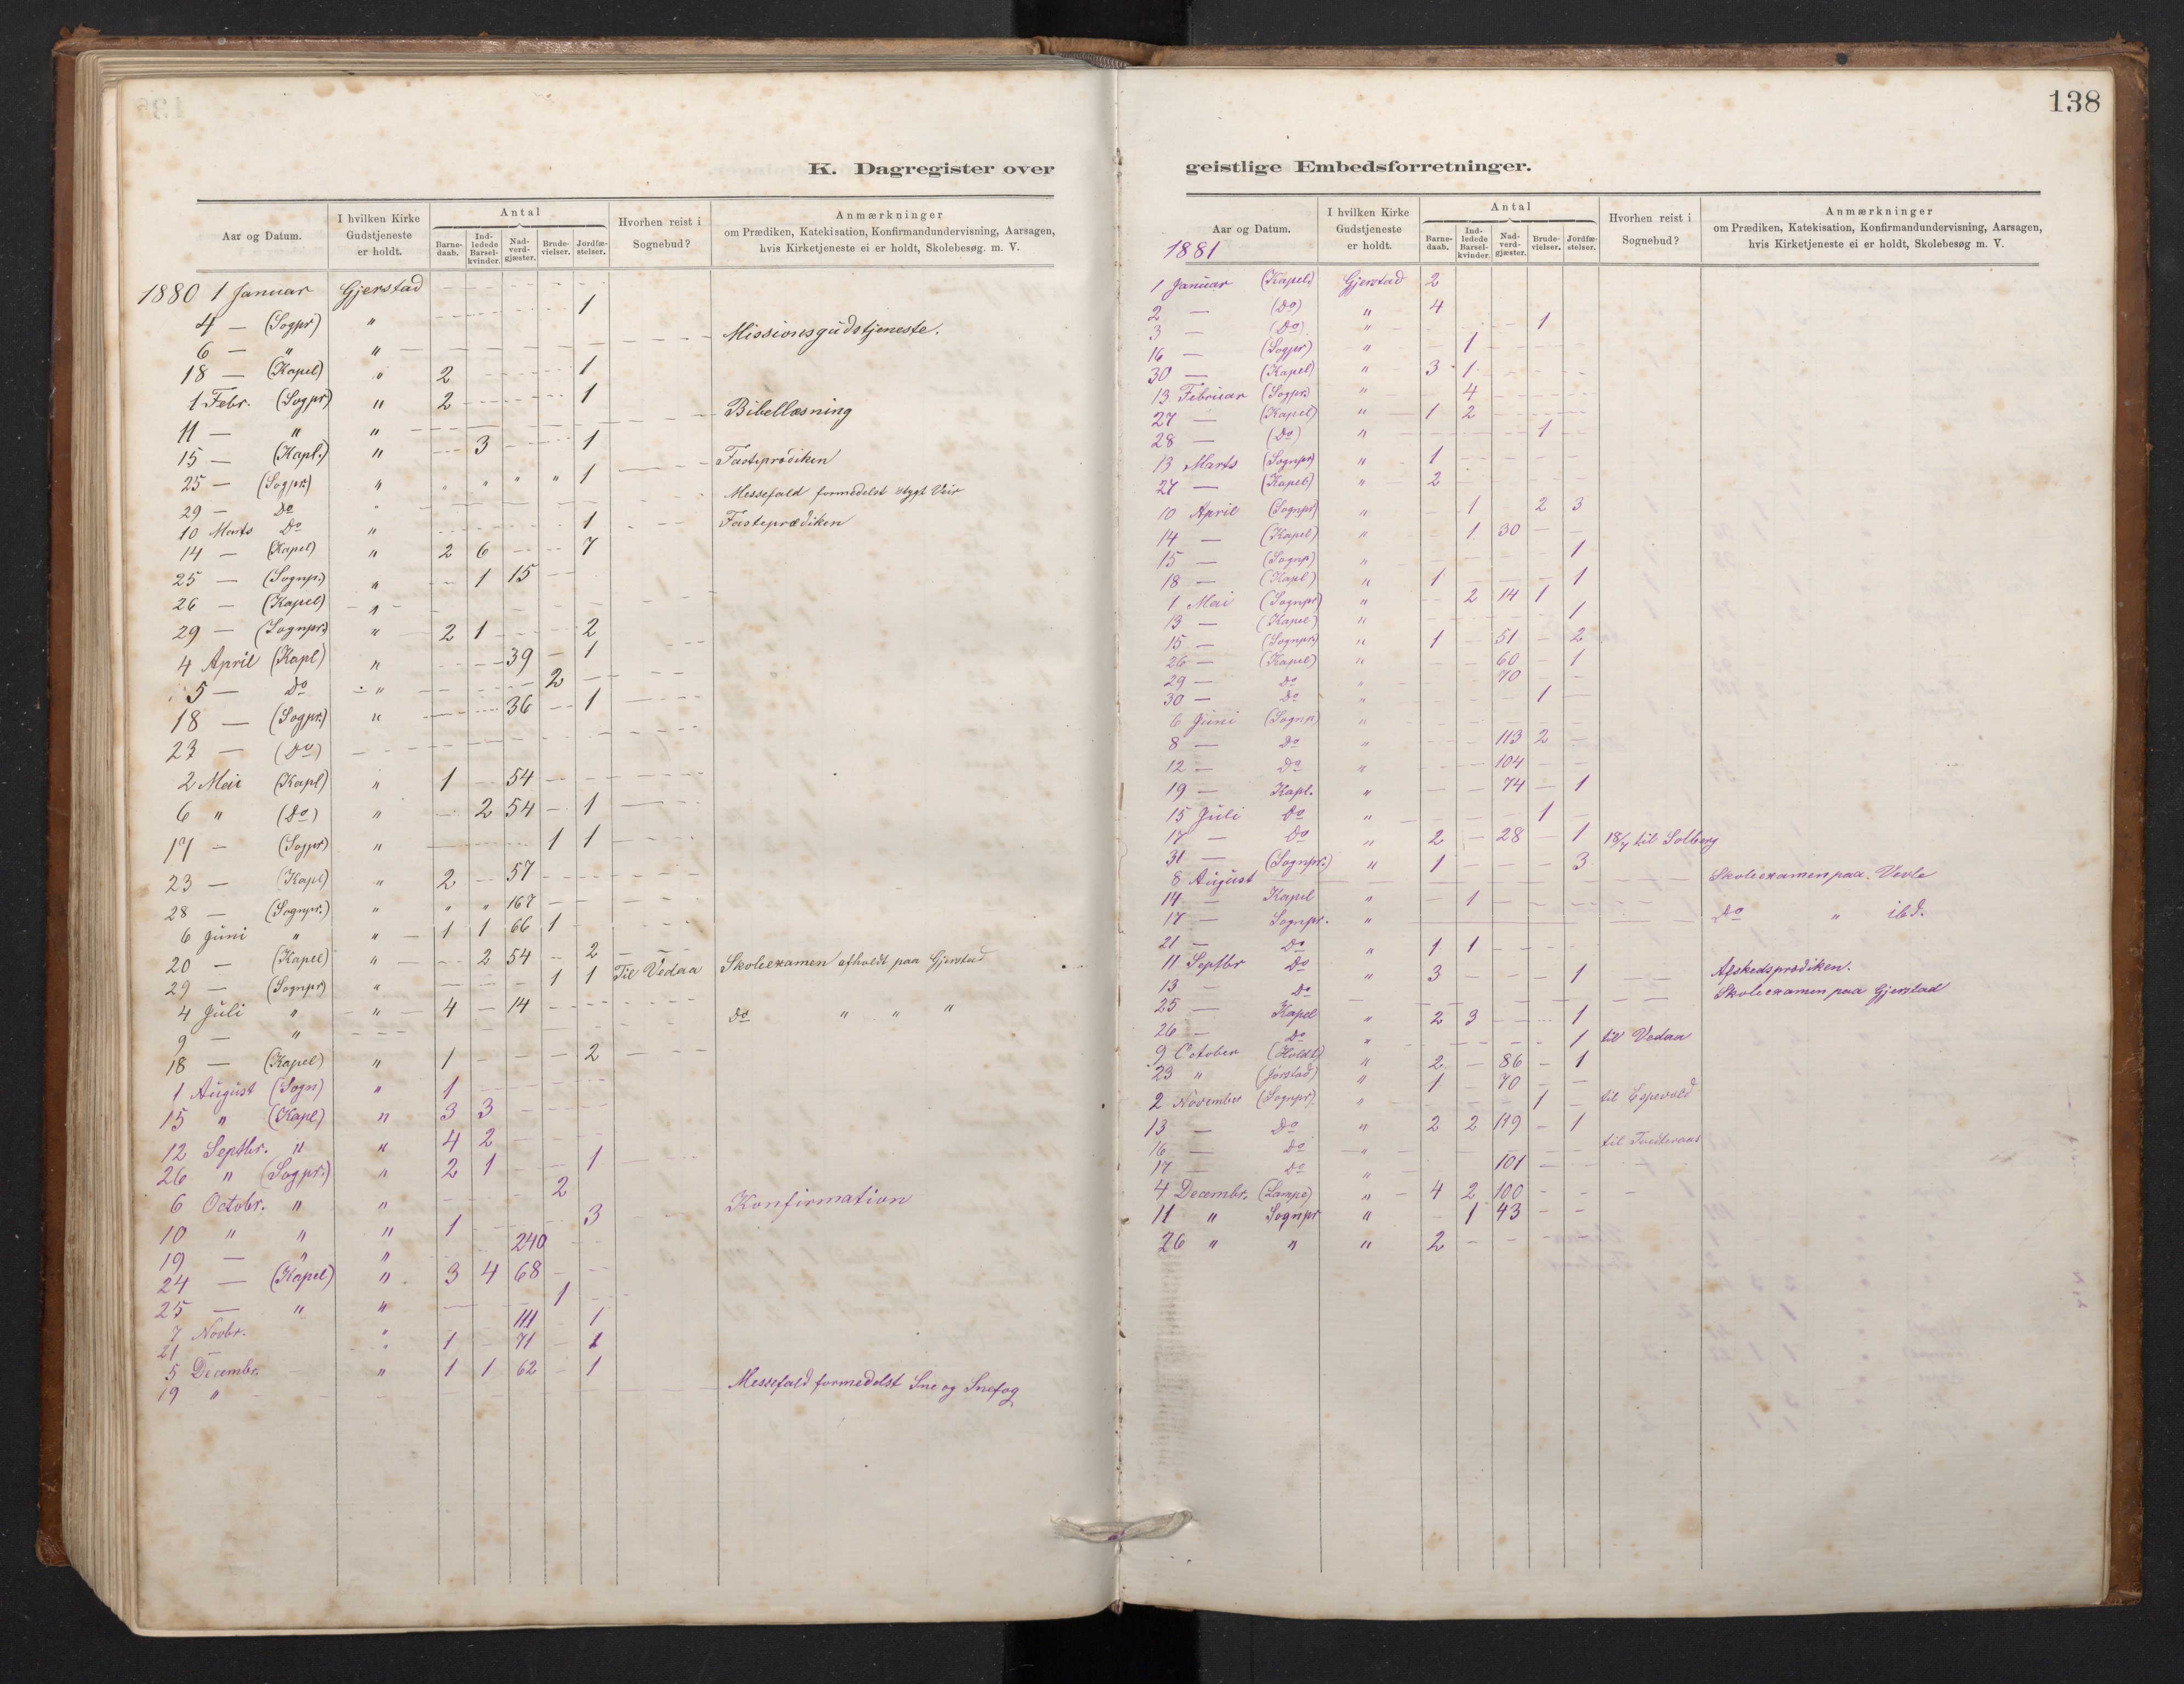 138
K. Dagregister over
Aar og Datum. I hvilken Kirke Gudstjeneste er holdt. Antal Barnedaab. Indledede Barselkvinder. Nadverdgjæster. Brudevielser. Jordfæstelser. Hvorhen reist i Sognebud? Anmærkninger om Prædiken, Katekisation, Konfirmandundervisning, Aarsagen, hvis Kirketjeneste ei er holdt, Skolebesøg. m. V.
1880 1 Januar Gjerstad
4 — (Sogpr) " 1
6 — " " Missionsgudstjeneste.
18 — (Kapel) " 2 1
1 Febr. (Sogpr) " 2 1
11 — " " Bibellæsning
15 — (Kapl.) " 3 1
25 — (Sogpr.) " " " " " 1 Fasteprædiken
29 — Do " Messefald formedelst stygt Veir
10 Marts Do " 1 Fasteprædiken
14 — (Kapel) " 2 6 7
25 — (Sognpr.) " 1 15
26 — (Kapel) "
29 — (Sognpr.) " 2 1 2
4 April (Kapl) " 39 1
5 — Do " 2
18 — (Sogpr.) " 36 1
23 — (Do)
2 Mai (Kapl) " 1 54
6 " (Do) " 2 54 1
17 — (Sogpr) " 1 1
23 — (Kapl) " 2 57
28 — (Sognpr.) " " " 167
6 Juni " " 1 1 66 1
20 — (Kapel) " 2 54 2
29 — (Sognpr) " 1 1 Til Vedaa Skoleexamen afholdt paa Gjerstad
4 Juli " " 4 14
9 — " Do " " "
18 — (Kapel) " 1 2
1 August (Sogn) " 1
15 " (Kapl) " 3 3
12 Septbr. " " 4 2
26 " (Sogpr.) " 2 1 1
6 Octobr. " " 2
10 " " " 1 3 Konfirmation
19 — " " 240
24 — (Kapel) " 3 4 68
25 — " " 1
7 Novbr. " 111 1
21 — " 1 71 1
5 Decembr. " 1 1 62 1
19 " Messefald formedelst Sne og Snefog
geistlige Embedsforretninger.
Aar og Datum. I hvilken Kirke Gudstjeneste er holdt. Antal Barnedaab. Indledede Barselkvinder. Nadverdgjæster. Brudevielser. Jordfæstelser. Hvorhen reist i Sognebud? Anmærkninger om Prædiken, Katekisation, Konfirmandundervisning, Aarsagen, hvis Kirketjeneste ei er holdt, Skolebesøg m. V.
1881
1 Januar (Kapel) Gjerstad 2
2 — (Do) " 4
3 — (Do) " 1
16 — (Sogpr) " 1
30 — (Kapel) " 3 1
13 Februar (Sogpr.) " 4
27 — (Kapel) " 1 2
28 — (Do) " 1
13 Marts (Sognpr) " 1
27 — (Kapel) " 2
10 April (Sognpr) " 1 2 3
14 — (Kapel) " 1 30
15 — (Sognp) " 1
18 — (Kapl) " 1 1
1 Mai (Sognpr) " 2 14 1
13 — (Kapel) " 1
15 — (Sognpr.) " 1 51 2
26 — (Kapel) " 60 1
29 — Do " 70
30 — Do " 1
6 Juni (Sognp) "
8 — Do " 113 2
12 — Do " 104
19 — Kapl. " 74 1
15 Juli Do " 1
17 — Do " 2 28 1 18/7 til Solberg
31 — (Sognpr.) " 1 3
8 August Skoleexamen paa Vevle
14 — Kapel " 1
17 — Sognpr. " Do " ibd.
21 — Do " 1 1
11 Septbr Do " 3 1 Afskedsprædiken.
13 — Do Skoleexamen paa Gjerstad
25 — Kapel " 2 3 1
26 — Do " 1 til Vedaa
9 October (Holdt) " 2 86 1
23 " (Jorstad) " 1 70
2 November (Sognpr). " 1 til Espevold
13 — Do " 2 2 119 1
16 — Do " til
17 — Do " 101
4 Decembr. (Lampe) " 4 2 100
11 " Sognpr " 1 43
26 " " " 2